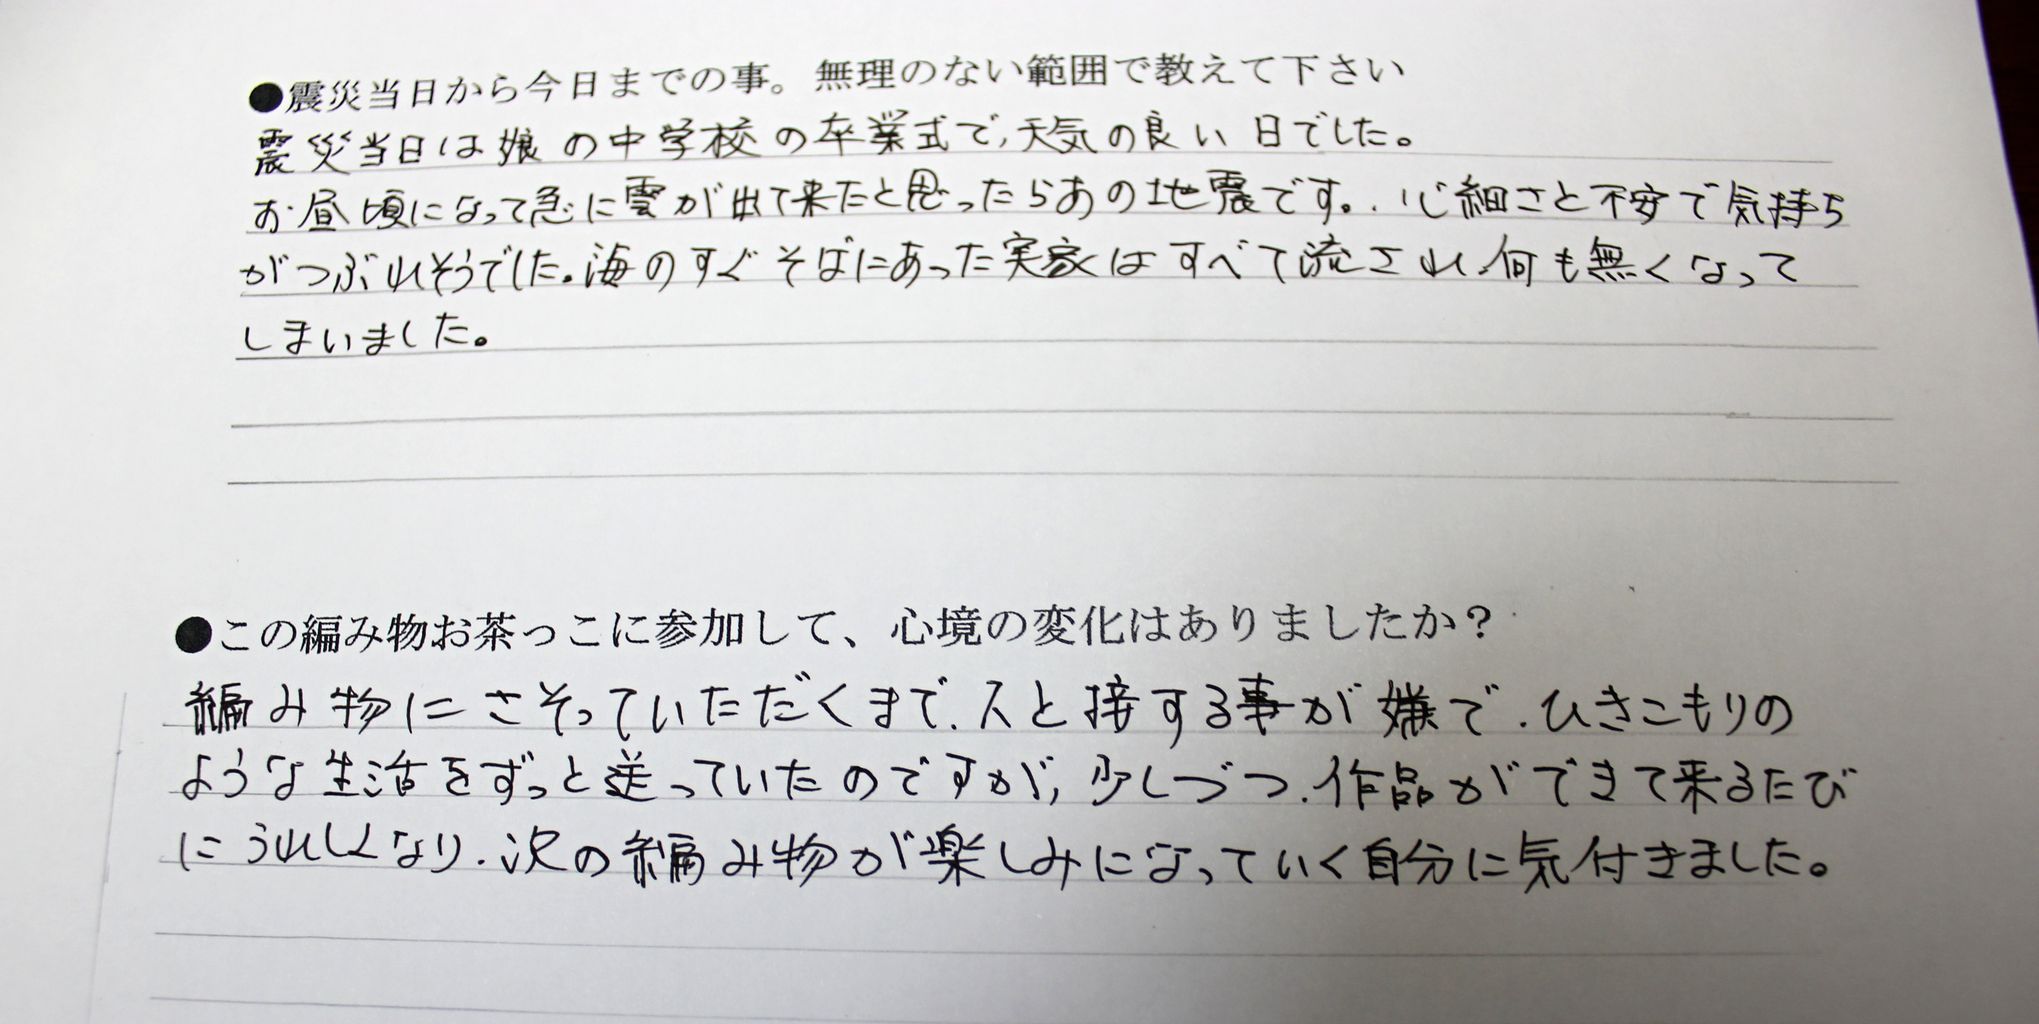 ●震災当日から今日までの事。無理のない範囲で教えて下さい
震災当日は娘の中学校の卒業式で、天気の良い日でした。
お昼頃になって急に雲が出て来たと思ったらあの地震です。心細さと不安で気持ち
がつぶれそうでした。海のすぐそばにあった実家はすべて流され、何も無くなって
しまいました。
●この編み物お茶っこに参加して、心境の変化はありましたか？
編み物にさそっていただくまで、人と接する事が嫌で、ひきこもりの
ような生活をずっと送っていたのですが、少しづつ、作品ができて来るたび
にうれしくなり、次の編み物が楽しみになっていく自分に気付きました。